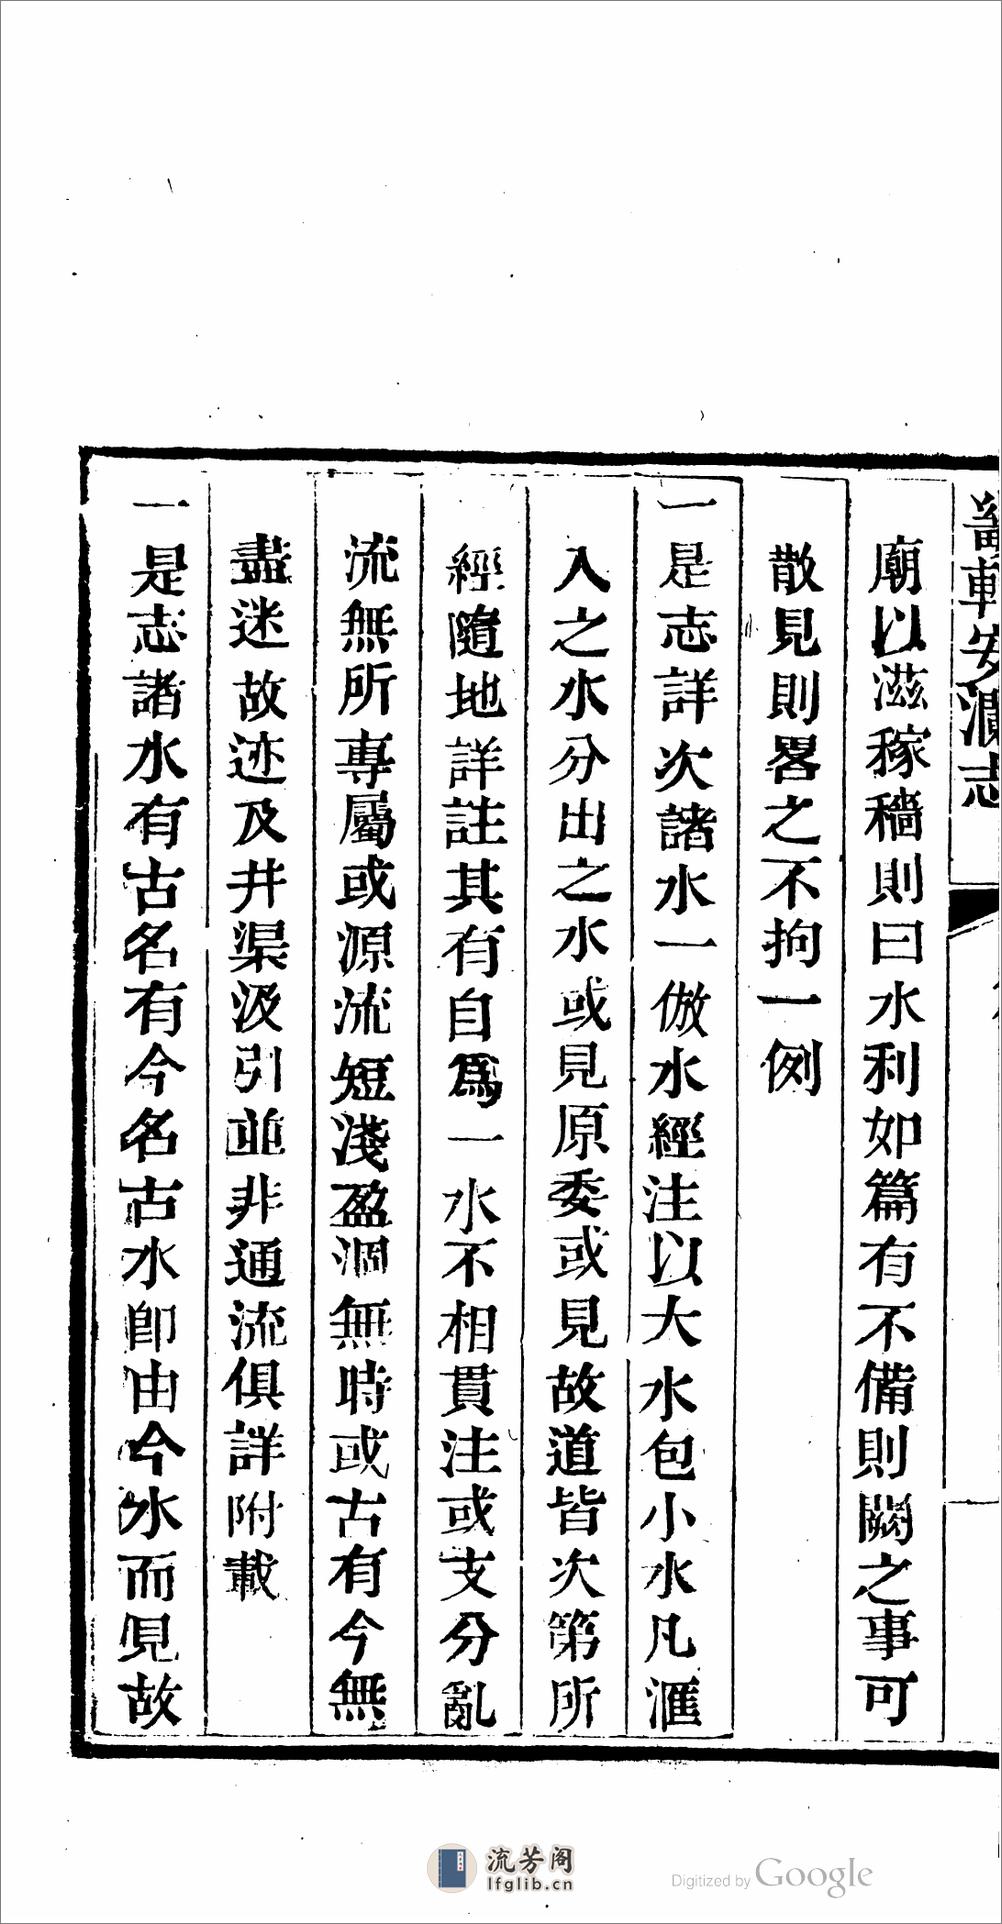 畿輔安瀾志
廟以滋稼穡則曰水利如篇有不備則闕之事可
散見則畧之不拘一例
一是志詳次諸水一倣水經注以大水包小水凡滙
入之水分出之水或見原委或見故道皆次第所
經隨地詳註其有自爲一水不相貫注或支分亂
流無所專屬或源流短淺盈涸無時或古有今無
盡迷故迹及井渠汲引並非通流俱詳附載
一是志諸水有古名有今名古水卽由今水而見故
流芳阁
lfglib.cn
Digitized by Google